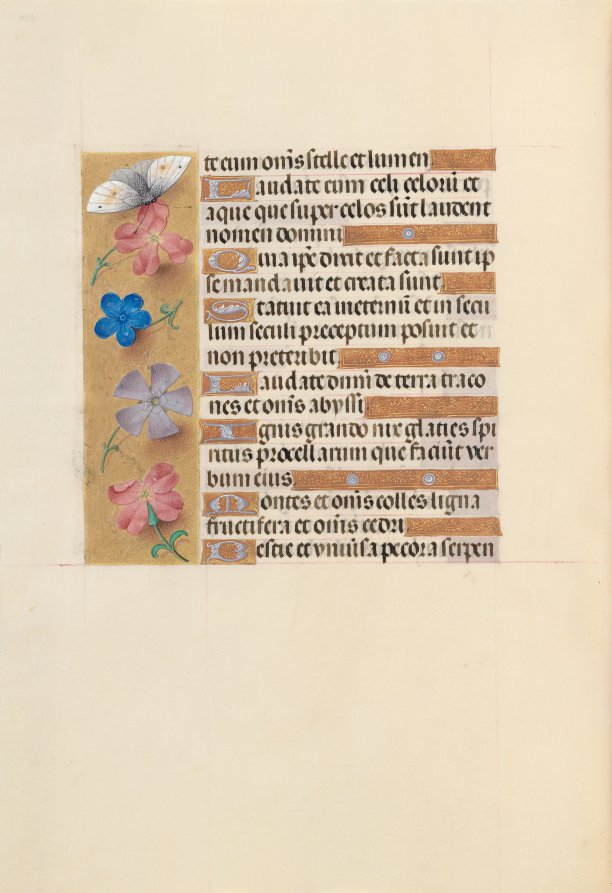 te eum om̄s stelle et lumen
Laudate eum celi celorū et
aque que super celos sūt laudent
nomen domini
Quia ip̄e dixit et facta sunt ip
se mandavit et creata sunt
Statuit ea ineternū et in secu
lum seculi preceptum posuit et
non preteribit
Laudate dnm̄ de terra traco
nes et om̄s abyssi
Ignis grando nix glaties spi
ritus procellarum que faciūt ver
bum eius
Montes et om̄s colles ligna
fructifera et om̄s cedri
Bestie et vniūsa pecora serpen